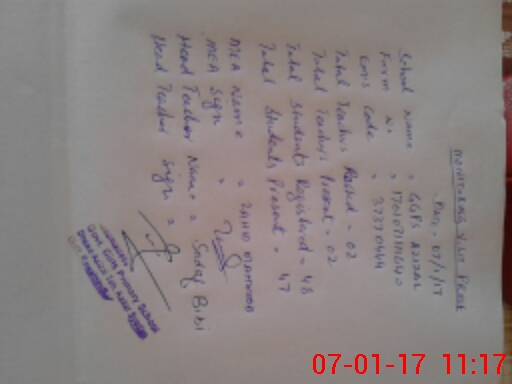 MONITORING VISIT PROOF
Date = 07/1/17
School Name = GGPS
Form No =
EMIS Code = 37370464
Total Teachers Posted = 02
Total Teachers Present = 02
Total Students Registered = 48
Total Students Present = 47
MEA Name = ZAHID MAHMOOD
MEA Sign =
Head Teacher Name = Sadaf Bibi
Head Teacher Sign =
Govt. Girls Primary School
07-01-17 11:17